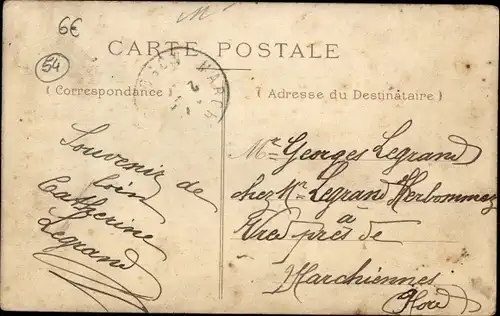 6€
54
CARTE POSTALE
( Correspondance )
( Adresse du Destinataire )
Souvenir de
loin
Catherine
Legrand
Mr Georges Legrand
chez Mr Legrand Herbommez
à
Vred près de
Marchiennes
(Nord)